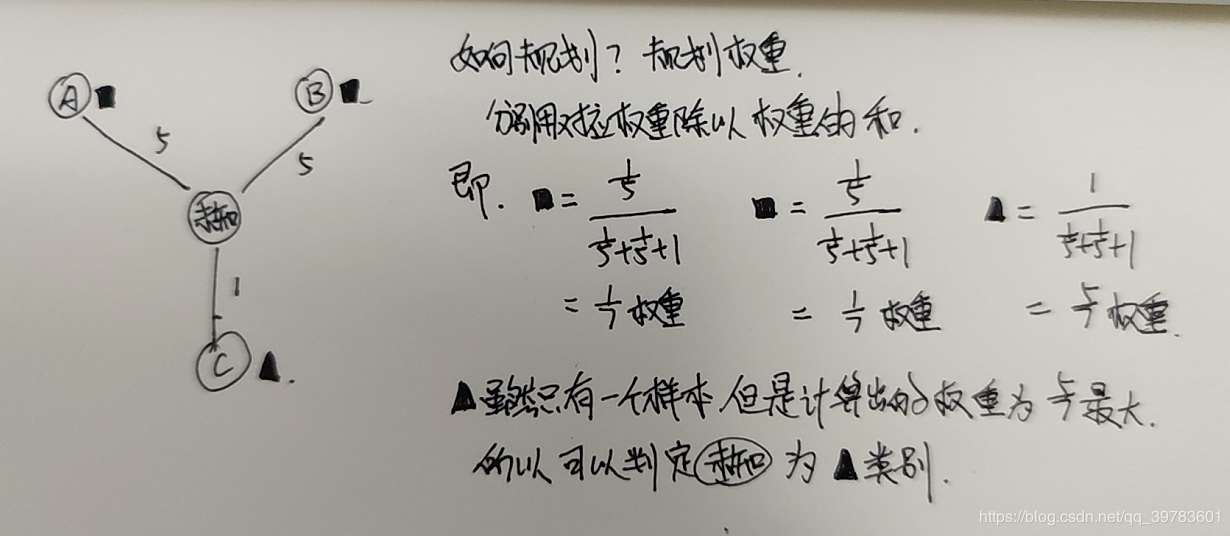 如何规划？规划权重.
分别用对应权重除以权重的和.
A ■ B ■
5 5
未知
1
C ▲.
即. ■ = (1/5)/(1/5+1/5+1) ■ = (1/5)/(1/5+1/5+1) ▲ = 1/(1/5+1/5+1)
= 1/7 权重 = 1/7 权重 = 5/7 权重.
▲虽然只有一个样本,但是计算出的权重为 5/7 最大.
所以可以判定 未知 为 ▲类别.
https://blog.csdn.net/qq_39783601